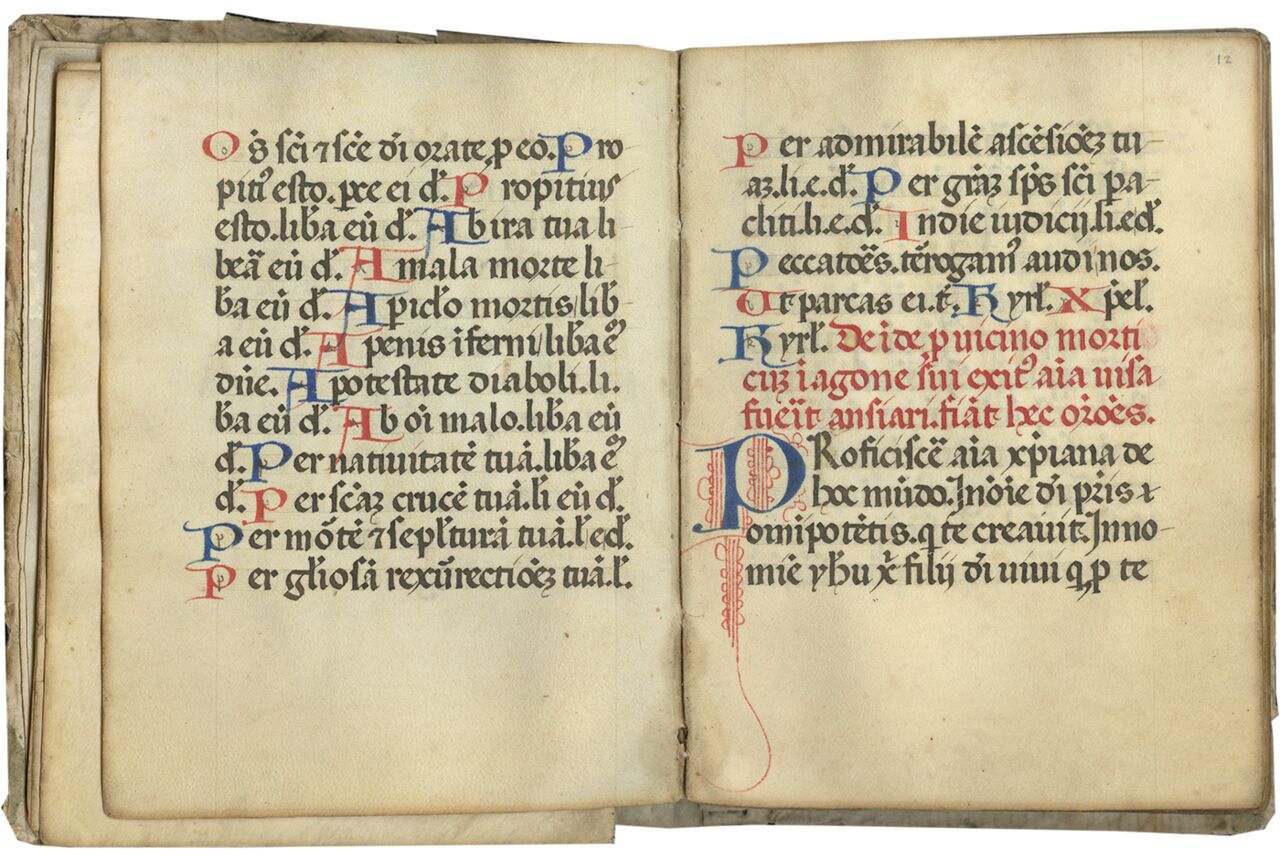 Os̄ sc̄i ⁊ sc̄e dī orate ꝓ eo. Pro
pitiꝰ esto. ꝑce ei d̄. Propitius
esto. lib̄a eū d̄. Ab ira tua li
beā eū d̄. A mala morte li
b̄a eū d̄. A picl̄o mortis lib
a eū d̄. A penis īferni lib̄a eꝰ
dn̄e. A potestate diaboli. li.
b̄a eū d̄. Ab oī malo. lib̄a eū
d̄. Per natiuitatē tuā. lib̄a eꝰ
d̄. Per sc̄aꝫ crucē tuā. lī eū d̄.
Per mōtē ⁊ sepl̄turā tuā. l̄. e. d̄.
Per gl̄iosā rexūrectiōeꝫ tuā. l̄.
12
Per admirabilē ascēsiōeꝫ tu
aꝫ. li. e. d̄. Per gr̄aꝫ sp̄s sc̄i pa
cliti. li. e. d̄. In die iudicij. li. e. d̄.
Peccatōes. te rogamꝰ audi nos.
Ut parcas ei. t̄. Kyrl̄. Xp̄el̄.
Kyrl̄. Deīde ꝑ uicino morti
cuꝫ ī agone sui exitꝰ aīa uisa
fuerit ansiari. fiāt hec or̄oēs.
PRoficiscē aīa xp̄iana de
hoc mūdo. In oīe dī pr̄is
omīpotētis. q te creauit. In no
mīe yh̄u xp̄ filij dī uiui q ꝑ te